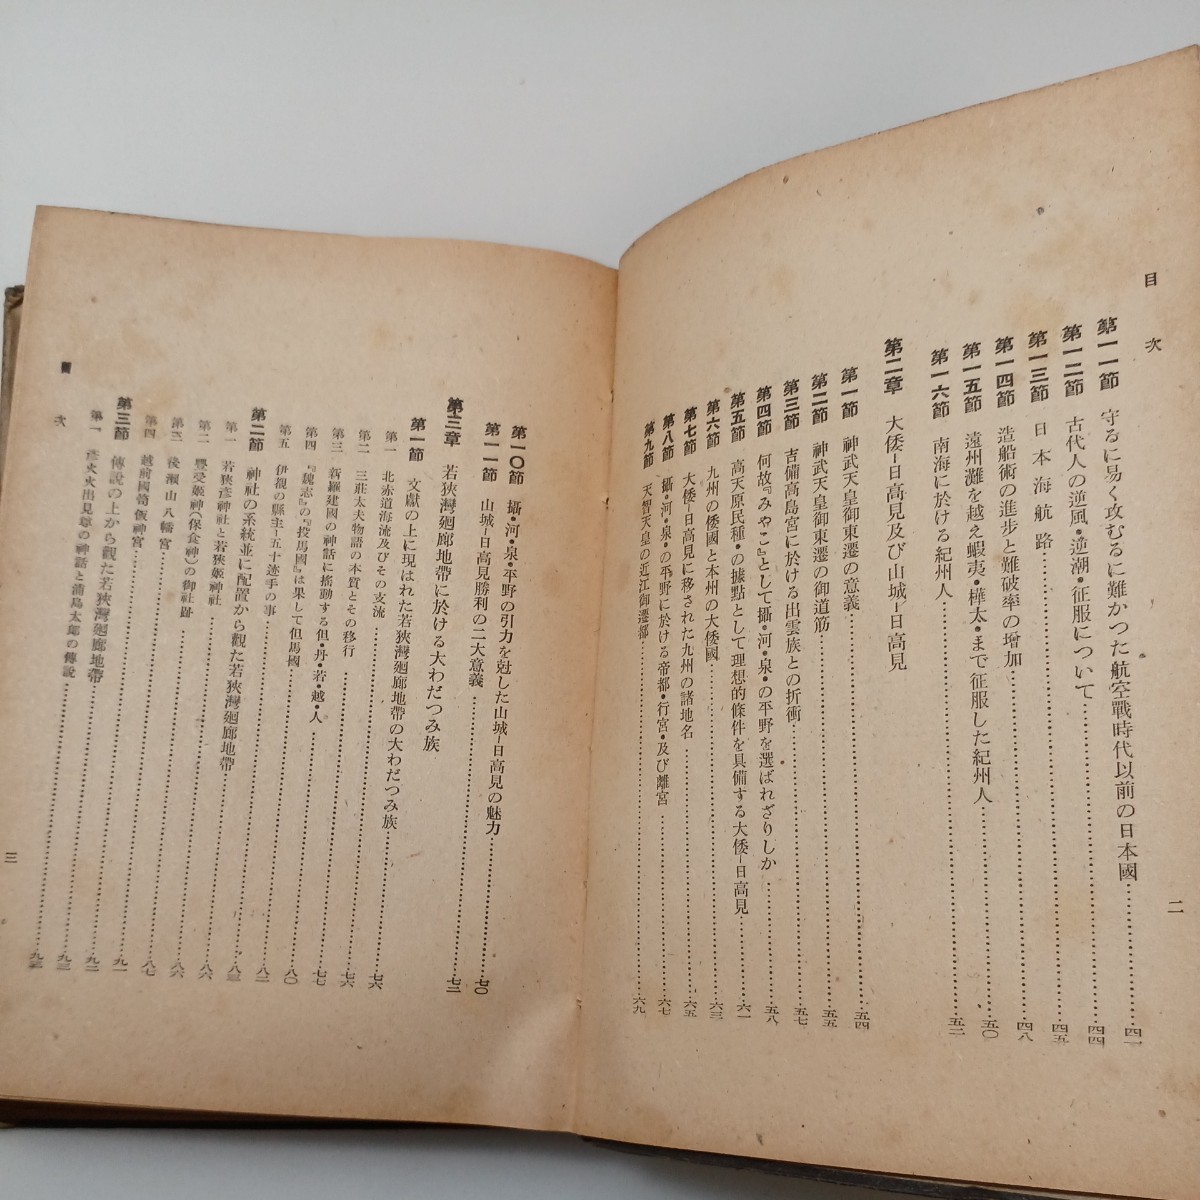 目次
第一一節 守るに易く攻むるに難かつた航空戰時代以前の日本國…………四一
第一二節 古代人の逆風・逆潮・征服について…………四四
第一三節 日本海航路…………四五
第一四節 造船術の進步と難破率の增加…………四八
第一五節 遠州灘を越え蝦夷・樺太・まで征服した紀州人…………五〇
第一六節 南海に於ける紀州人…………五二
第二章 大倭=日高見及び山城=日高見
第一節 神武天皇御東遷の意義…………五四
第二節 神武天皇御東遷の御道筋…………五五
第三節 吉備高島宮に於ける出雲族との折衝…………五七
第四節 何故『みやこ』として攝・河・泉・の平野を選ばれざりしか…………五八
第五節 高天原民種・の據點として理想的條件を具備する大倭=日高見…………六一
第六節 九州の倭國と本州の大倭國…………六三
第七節 大倭=日高見に移された九州の諸地名…………六五
第八節 攝・河・泉・の平野に於ける帝都・行宮・及び離宮…………六七
第九節 天智天皇の近江御遷都…………六九
二
第一〇節 攝・河・泉・平野の引力を尅した山城=日高見の魅力…………七〇
第一一節 山城=日高見勝利の二大意義…………七二
第三章 若狹灣廻廊地帶に於ける大わだつみ族
第一節 文獻の上に現はれた若狹灣廻廊地帶の大わだつみ族…………七六
第一 北赤道海流及びその支流…………七六
第二 三莊太夫物語の本質とその移行…………七六
第三 新羅建國の神話に搖動する但・丹・若・越・人…………七七
第四 『魏志』の『投馬國』は果して但馬國…………八〇
第五 伊覩の縣主=五十迹手の事…………八二
第二節 神社の系統並に配置から觀た若狹灣廻廊地帶…………八三
第一 若狹彥神社と若狹姬神社…………八六
第二 豐受姬神(保食神)の御社趾…………八六
第三 後瀨山八幡宮…………八七
第四 越前國笥飯神宮…………九一
第三節 傳說の上から觀た若狹灣廻廊地帶…………九二
第一 彥火火出見尊の神話と浦島太郞の傳說…………九三
次
三